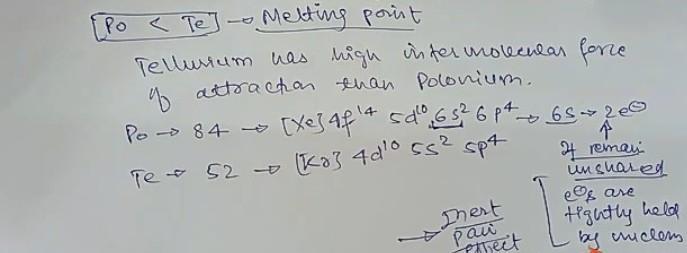 Po < Te → Melting point
Tellurium has high intermolecular force
of attraction than Polonium.
Po → 84 → [Xe] 4f¹⁴ 5d¹⁰ 6s² 6p⁴ → 6s → 2e⊖
Te → 52 → [Kr] 4d¹⁰ 5s² 5p⁴
It remain
unshared
e⊖s are
tightly held
by nucleus
→ Inert
pair
effect